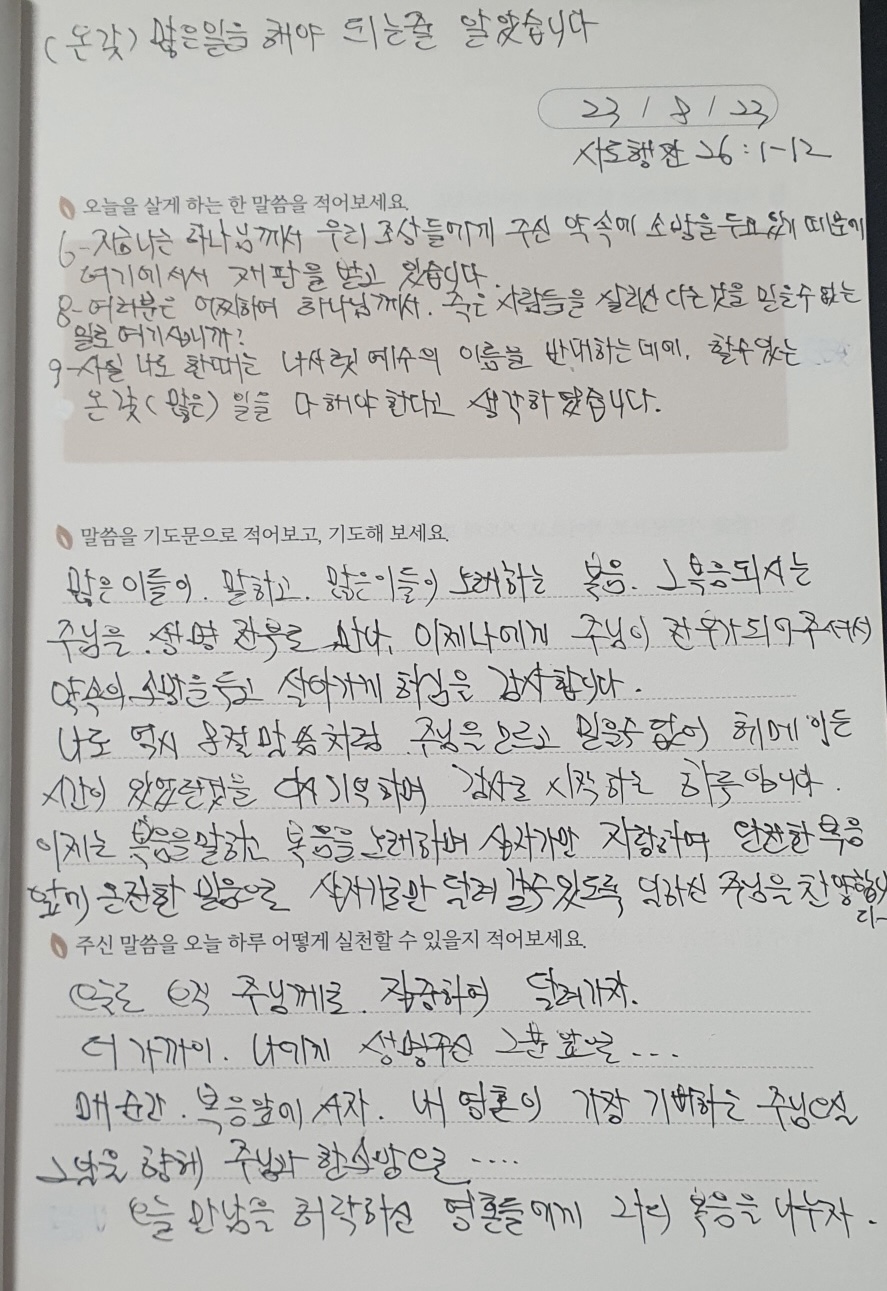 (온갖) 많은일을 해야 되는줄 알았습니다
23 / 8 / 23
사도행전 26:1-12
오늘을 살게 하는 한 말씀을 적어보세요.
6-지금나는 하나님께서 우리 조상들에게 주신 약속에 소망을 두고 있기 때문에
여기에 서서 재판을 받고 있습니다.
8-여러분은 어찌하여 하나님께서. 죽은 사람들을 살리신다는것을 믿을수 없는
일로 여기십니까?
9-사실 나도 한때는 나사렛 예수의 이름을 반대하는데에, 할수있는
온갖(많은) 일을 다해야 한다고 생각하였습니다.
말씀을 기도문으로 적어보고, 기도해 보세요.
많은이들이. 말하고. 많은이들이 노래하는 복음. 그복음되시는
주님을. 생명 전부로 산다. 이제나에게 주님이 전부가되어주셔서
약속의 소망을 두고 살아가게 하심을 감사합니다.
나도 역시 8절말씀처럼 주님을 모르고 믿을수 없어 헤메이든
시간이 있었단것을 기억하며 감사로 시작하는 하루입니다.
이제는 복음을말하고 복음을노래하며 십자가만 자랑하며 완전한 복음
앞에 온전한 믿음으로 십자가로만 달려갈수있도록 일하신 주님을 찬양합니
다-
주신 말씀을 오늘 하루 어떻게 실천할 수 있을지 적어보세요.
오늘도 오직 주님께로. 집중하여 달려가자.
더 가까이. 나에게 생명주신 그분앞으로....
매순간. 복음앞에 서자. 내 영혼이 가장 기뻐하는 주님오실
그날을 향해 주님과 한소망으로....
오늘 만남을 허락하신 영혼들에게 복음을 나누자.